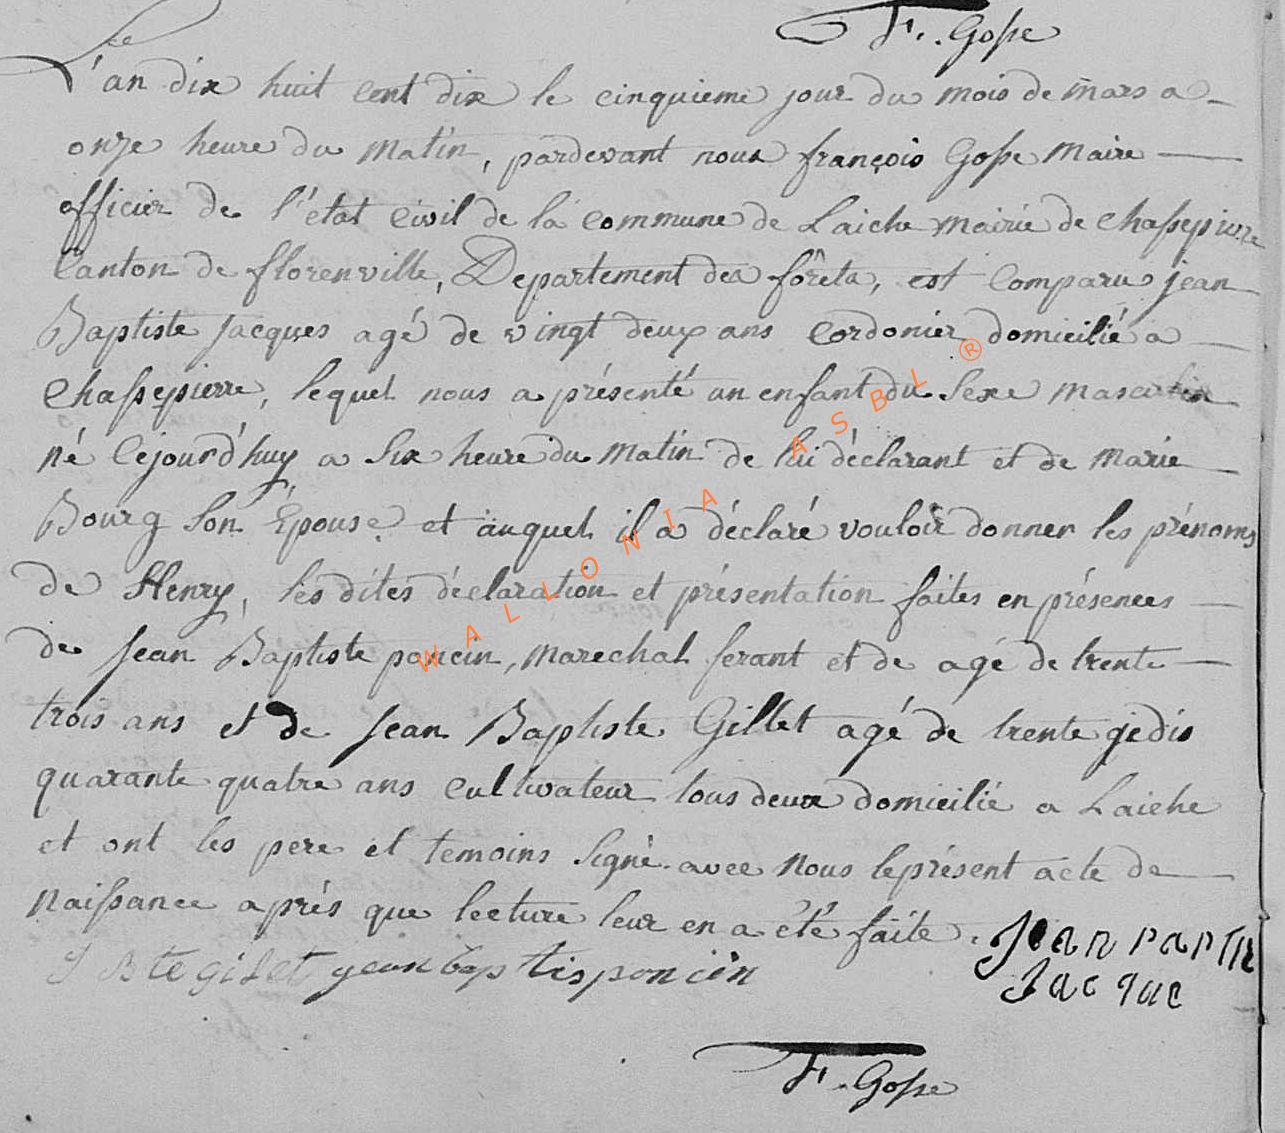 F. Gosse
L'an dix huit cent dix le cinquieme jour du mois de mars a
onze heure du matin, pardevant nous françois Gosse maire
officier de l'état civil de la commune de Laiche mairie de chassepierre
Canton de florenville, Departement des fôrets, est comparu jean
Baptiste Jacques agé de vingt deux ans cordonier domicilié a
Chassepierre, lequel nous a présenté un enfant du sexe masculin
né cejourd'huy a six heure du matin de lui déclarant et de marie
Bourg son Épouse et auquel il a déclaré vouloir donner les prénoms
de Henry, les dites déclaration et présentation faites en présences
de Jean Baptiste poncin, marechal ferant et de agé de trente
trois ans et de Jean Baptiste Gillet agé de trente jedis
quarante quatre ans cultivateur tous deux domicilié a Laiche
et ont les pere et temoins signé avec nous leprésent acte de
naissance après que lecture leur en a été faite.
J Bte gilet jean bap tis poncin
Jean paptit
Jacque
F. Gosse
WALLONIA ASBL ®